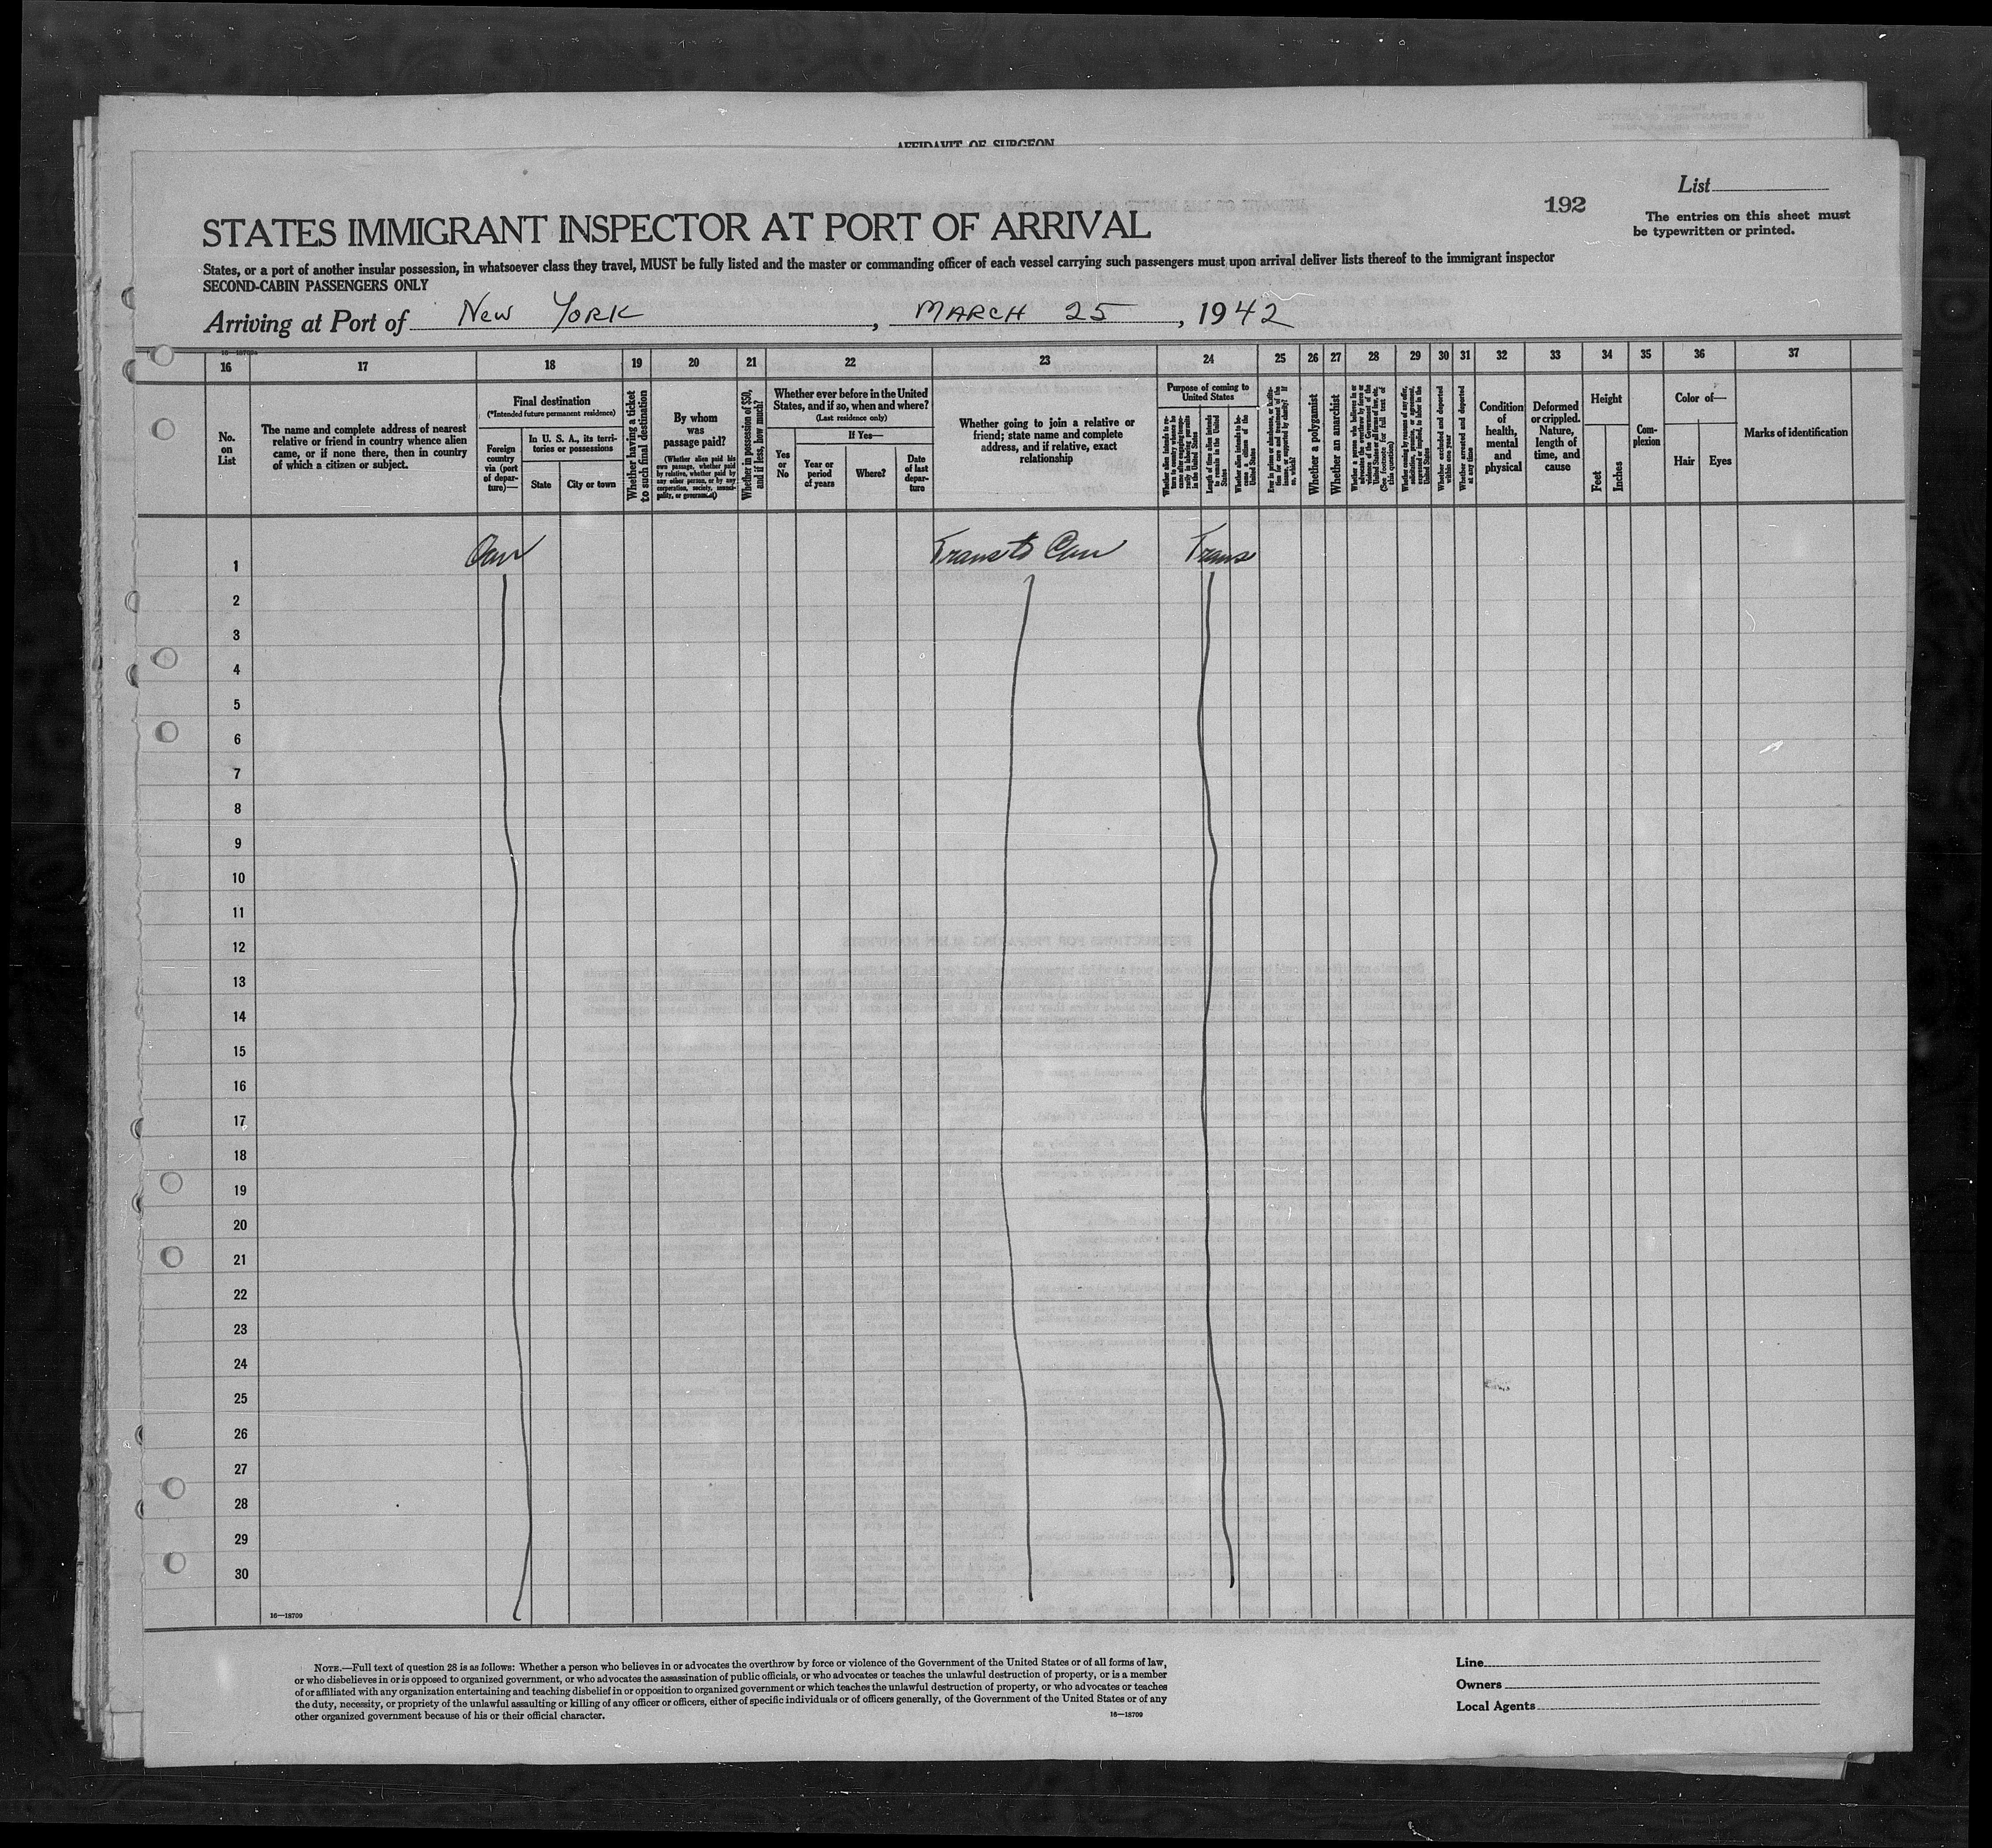 AFFIDAVIT OF SURGEON
List
192
The entries on this sheet must
be typewritten or printed.
STATES IMMIGRANT INSPECTOR AT PORT OF ARRIVAL
States, or a port of another insular possession, in whatsoever class they travel, MUST be fully listed and the master or commanding officer of each vessel carrying such passengers must upon arrival deliver lists thereof to the immigrant inspector
SECOND-CABIN PASSENGERS ONLY
Arriving at Port of New York, MARCH 25, 1942
16 17 18 19 20 21 22 23 24 25 26 27 28 29 30 31 32 33 34 35 36 37
No.
on
List
The name and complete address of nearest
relative or friend in country whence alien
came, or if none there, then in country
of which a citizen or subject.
Final destination
(*Intended future permanent residence)
Foreign
country
via (port
of depar-
ture)—
In U. S. A., its terri-
tories or possessions
State
City or town
Whether having a ticket
to such final destination
By whom
was
passage paid?
(Whether alien paid his
own passage, whether paid
by relative, whether paid by
any other person, or by any
corporation, society, munici-
pality, or government)
Whether in possession of $50,
and if less, how much?
Whether ever before in the United
States, and if so, when and where?
(Last residence only)
Yes
or
No
If Yes—
Year or
period
of years
Where?
Date
of last
depar-
ture
Whether going to join a relative or
friend; state name and complete
address, and if relative, exact
relationship
Purpose of coming to
United States
Length of time alien intends
to remain in the United
States
Whether a polygamist
Whether an anarchist
Whether excluded and deported
within one year
Whether arrested and deported
at any time
Condition
of
health,
mental
and
physical
Deformed
or crippled.
Nature,
length of
time, and
cause
Height
Feet
Inches
Com-
plexion
Color of—
Hair
Eyes
Marks of identification
1 Can Transit to Can Trans
2
3
4
5
6
7
8
9
10
11
12
13
14
15
16
17
18
19
20
21
22
23
24
25
26
27
28
29
30
16—18709
NOTE.—Full text of question 28 is as follows: Whether a person who believes in or advocates the overthrow by force or violence of the Government of the United States or of all forms of law,
or who disbelieves in or is opposed to organized government, or who advocates the assassination of public officials, or who advocates or teaches the unlawful destruction of property, or is a member
of or affiliated with any organization entertaining and teaching disbelief in or opposition to organized government or which teaches the unlawful destruction of property, or who advocates or teaches
the duty, necessity, or propriety of the unlawful assaulting or killing of any officer or officers, either of specific individuals or of officers generally, of the Government of the United States or of any
other organized government because of his or their official character.
16—18709
Line
Owners
Local Agents